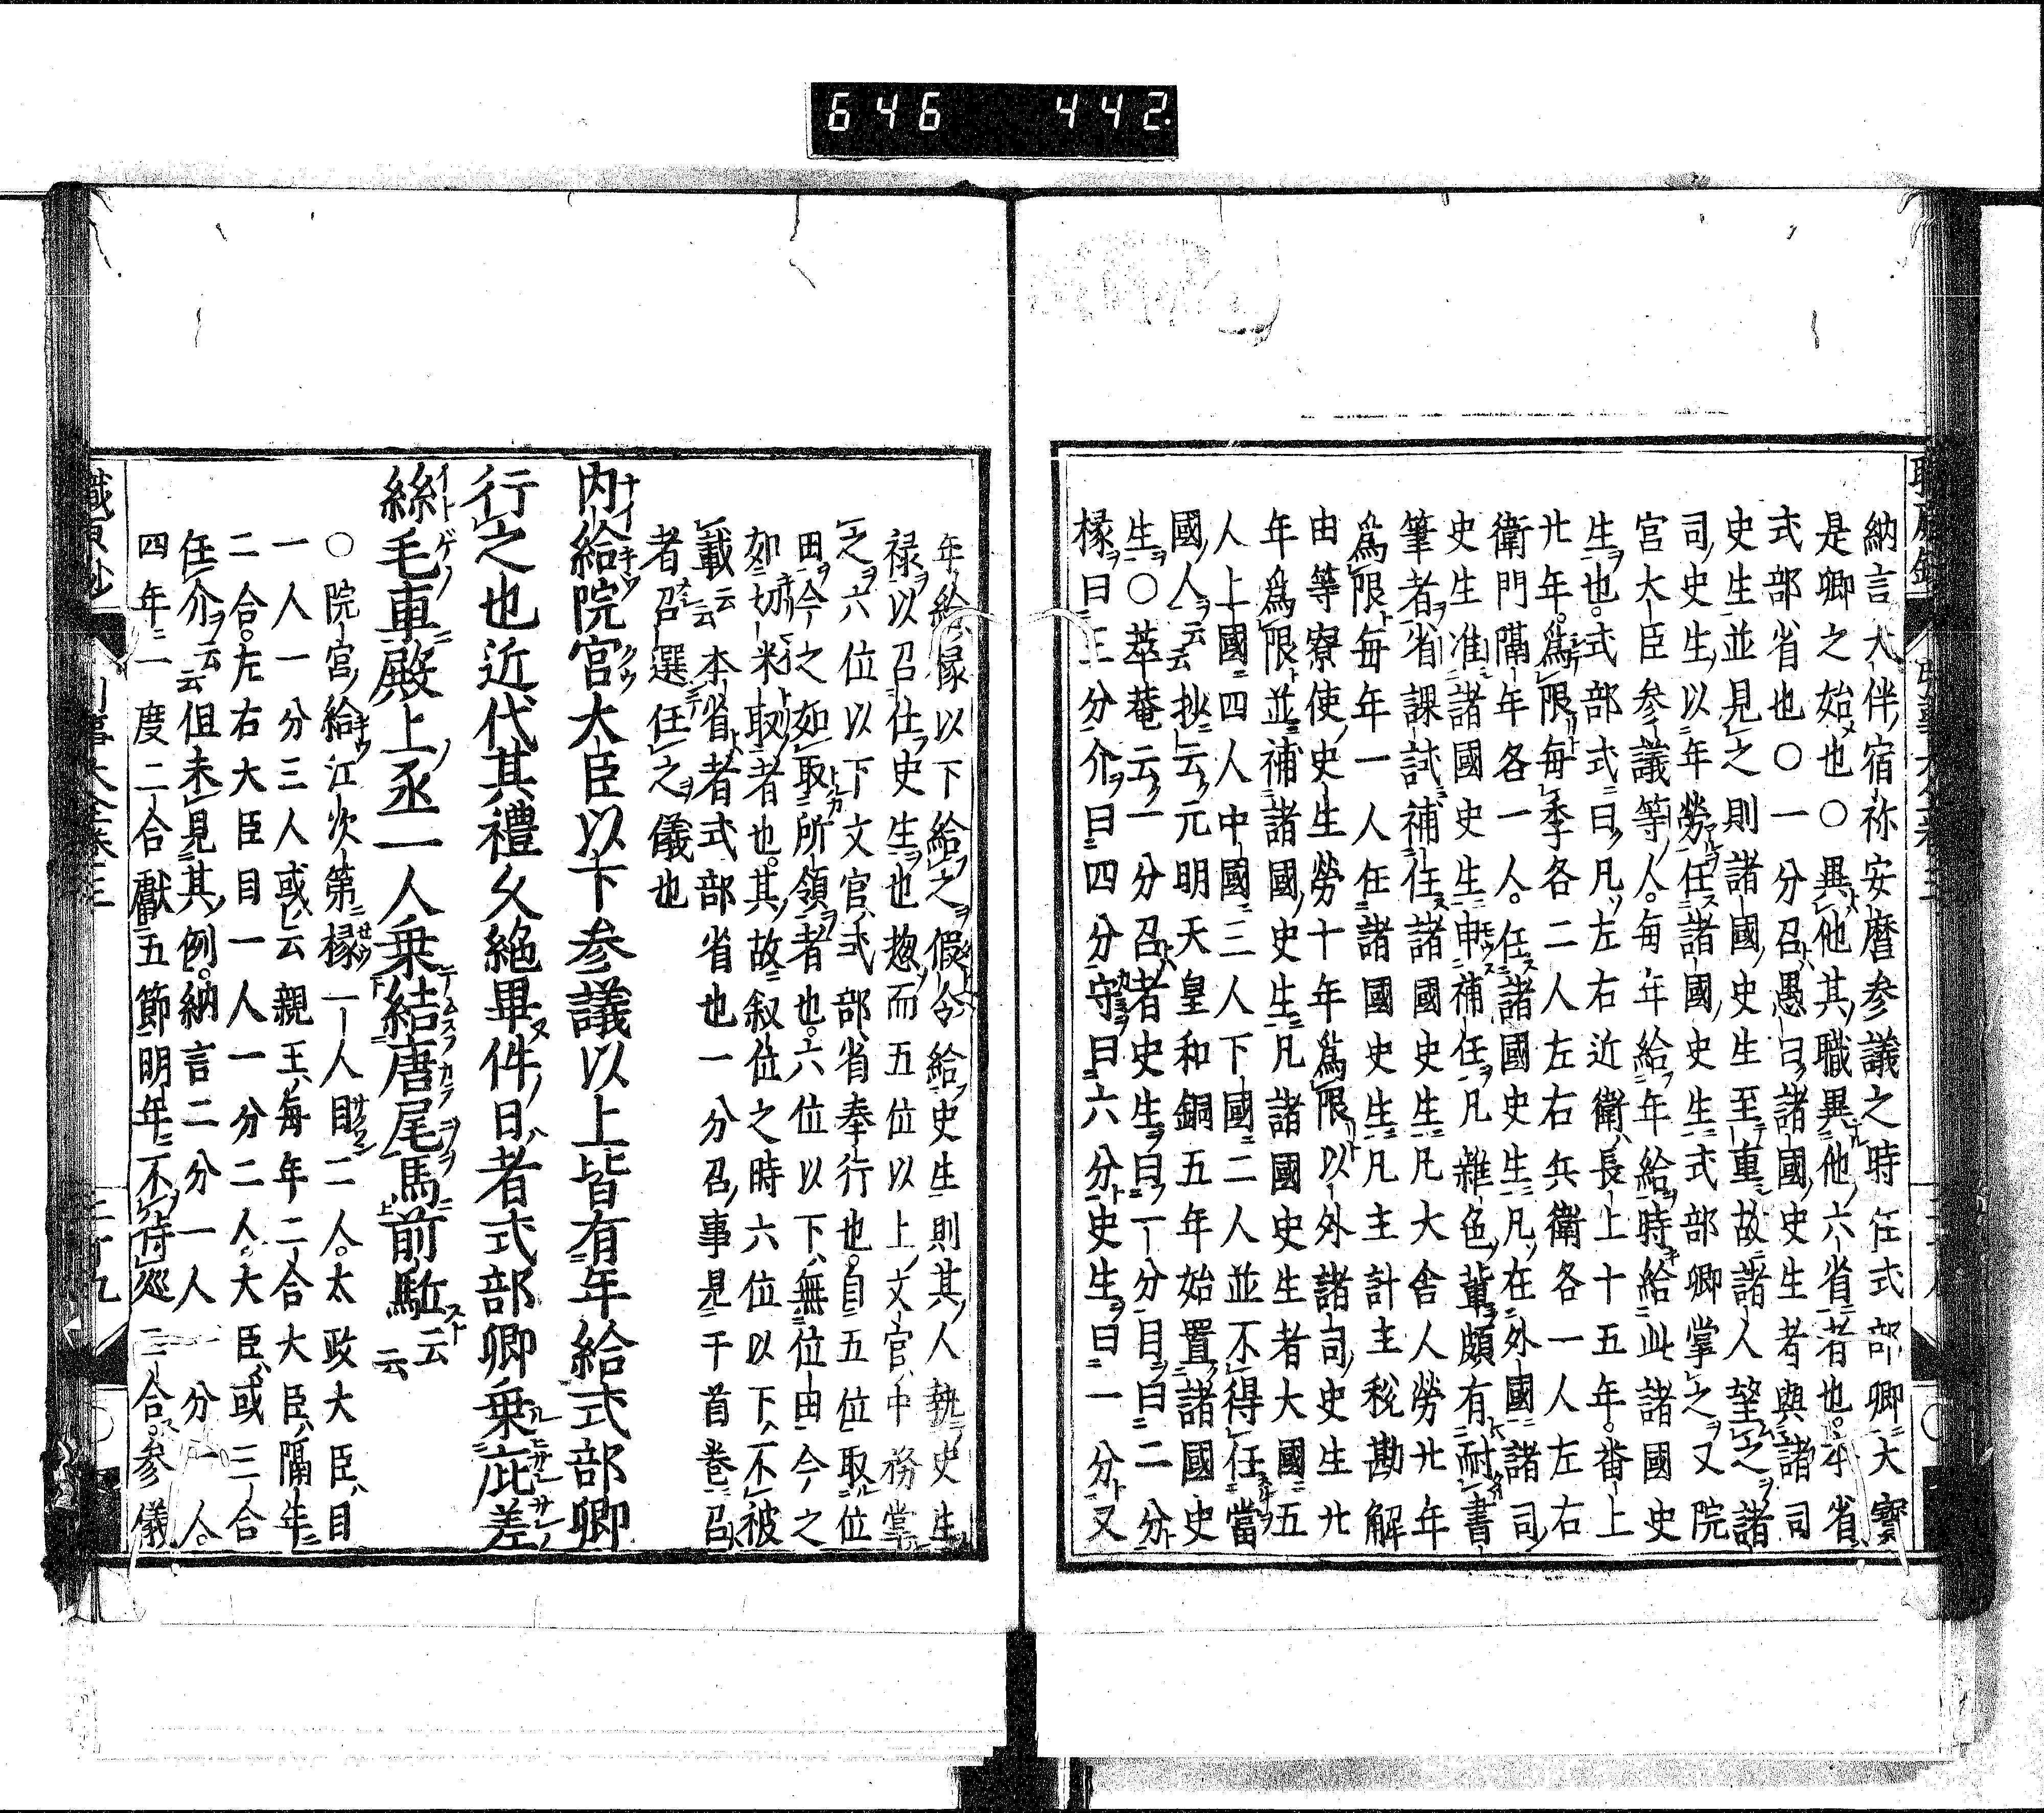 646 442.
納言大伴宿祢安麿参議之時任式部卿大寳
是卿之始也〇異他其職異他六省者也本省
式部省也〇一分召愚曰諸國史生者與諸司
史生並見之則諸國史生至重故諸人望之諸
司史生以年勞任諸國史生式部卿掌之又院
宮大臣参議等人毎年給年給時給此諸國史
生也式部式曰凡左右近衛長上十五年番上
廿年為限毎季各二人左右兵衛各一人左右
衛門隔年各一人任諸國史生凡在外國諸司
史生准諸國史生申補任凡雜色輩頗有耐書
筆者省課試補任諸國史生凡大舎人勞廿年
爲限毎年一人任諸國史生凡主計主税勘解
由等寮使史生勞十年爲限以外諸司史生廿
年爲限並補諸國史生凡諸國史生者大國五
人上國四人中國三人下國二人並不得任當
國人云云抄云元明天皇和銅五年始置諸國史
生〇萃菴云一分召者史生曰一分目曰二分
椽曰三分介曰四分守曰六分史生曰一分又
年給椽以下給之假令給史生則其人執史生
禄以召仕史生也惣而五位以上文官中務掌
之六位以下文官式部省奉行也自五位取位
田今之如取所領者也六位以下無位由今之
如切米取者也其故叙位之時六位以下不被
載云云本省者式部省也一分召事見于首巻召
者召選任之儀也
内給院宮大臣以下参議以上皆有年給式部卿
行之也近代其禮久絶畢件日者式部卿乗庇差
絲毛車殿上丞一人乗結唐尾馬前駈云云
〇院宮給江次第椽一人目二人太政大臣目
一人一分三人或云親王毎年二合大臣隔年
二合左右大臣目一人一分二人大臣或三合
任介云云但未見其例納言二分一人一分一人
四年一度二合獻五節明年不待巡二合参儀